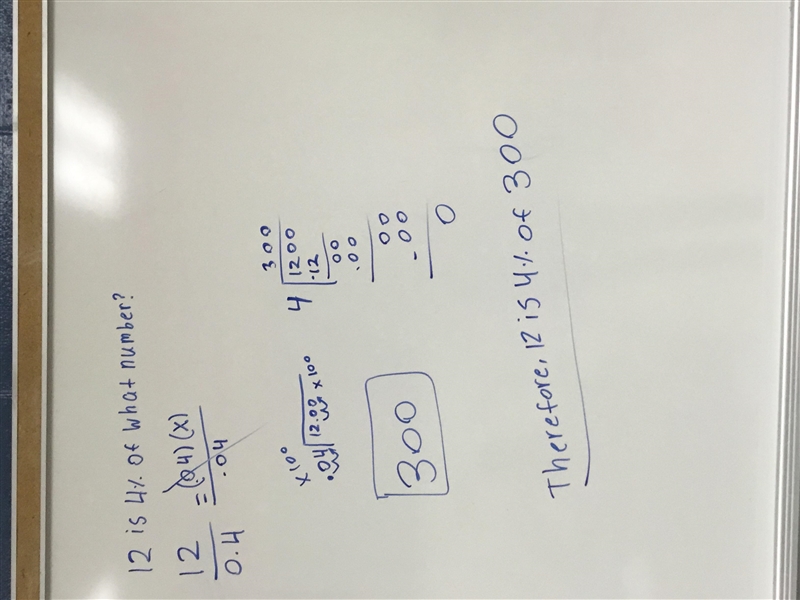 12 is 4% of what number?
12 = (.04)(x)
0.4 .04
×100
.04 12.00 ×100
300
300
4 1200
-12
00
-00
00
-00
0
Therefore, 12 is 4% of 300